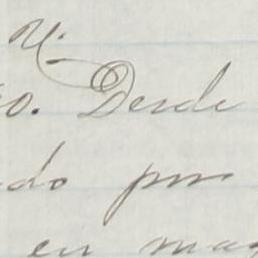 o. Desde
do por
en